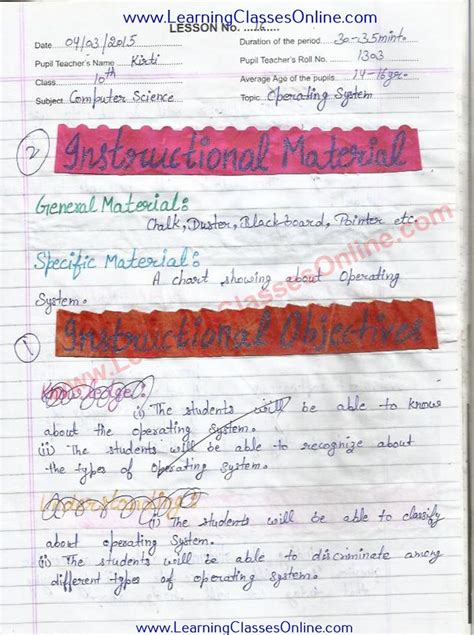 www.LearningClassesOnline.com
LESSON No. ...16....
Date 04/03/2015 Duration of the period 30-35mint.
Pupil Teacher's Name Kirti Pupil Teacher's Roll No. 1303
Class 10th Average Age of the pupils 14-16yr.
Subject Computer Science Topic Operating System
2 Instructional Material
General Material:
Chalk, Duster, Blackboard, Pointer etc.
Specific Material:
A chart showing about Operating
System.
1 Instructional Objectives
Knowledge:
i) The students will be able to know
about the operating system.
(ii) The students will be able to recognize about
the types of operating system.
Understanding:
(i) The students will be able to classify
about operating System.
(ii) The students will be able to discriminate among
different types of operating system.
www.LearningClassesOnline.com
www.LearningClassesOnline.com